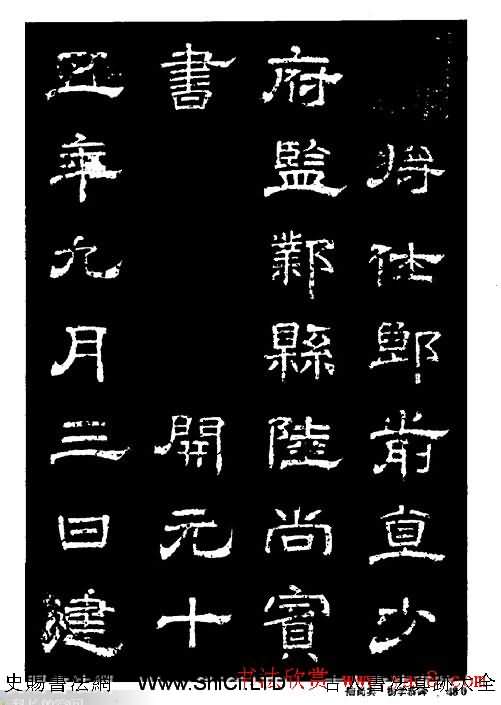 將仕郎前直少
府監鄴縣陸尚賓
書 開元十
五年九月三日建
书法欣赏
史賜書法網 www.ShiCi.LTD